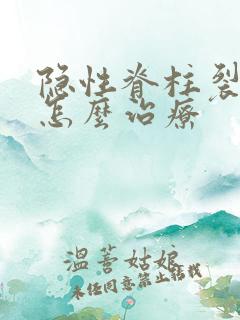 隐性脊柱裂
怎麼治療
温荨姑娘
未任同意禁止转载